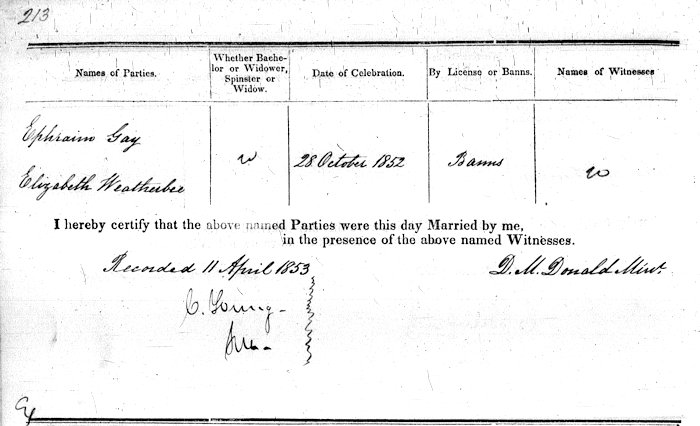 213
Names of Parties.
Whether Bache-
lor or Widower,
Spinster or
Widow.
Date of Celebration.
By License or Banns.
Names of Witnesses
Ephraim Gay
Elizabeth Weatherbee
28 October 1852
Banns
I hereby certify that the above named Parties were this day Married by me,
in the presence of the above named Witnesses.
Recorded 11 April 1853
D. M. Donald Minr.
C. Young